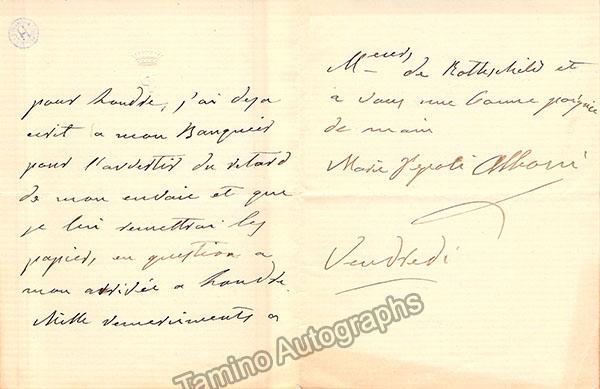 pour Londre, j'ai deja
ecrit a mon Banquier
pour l'avertir du retard
de mon envoie et que
je lui remettrai les
papiers en question a
mon arrivée a Londre.
Mille remerciments a
Meurs de Rothschild et
a vous une bonne poignée
de main
Marie Pepoli Alboni
Vendredi
Tamino Autographs